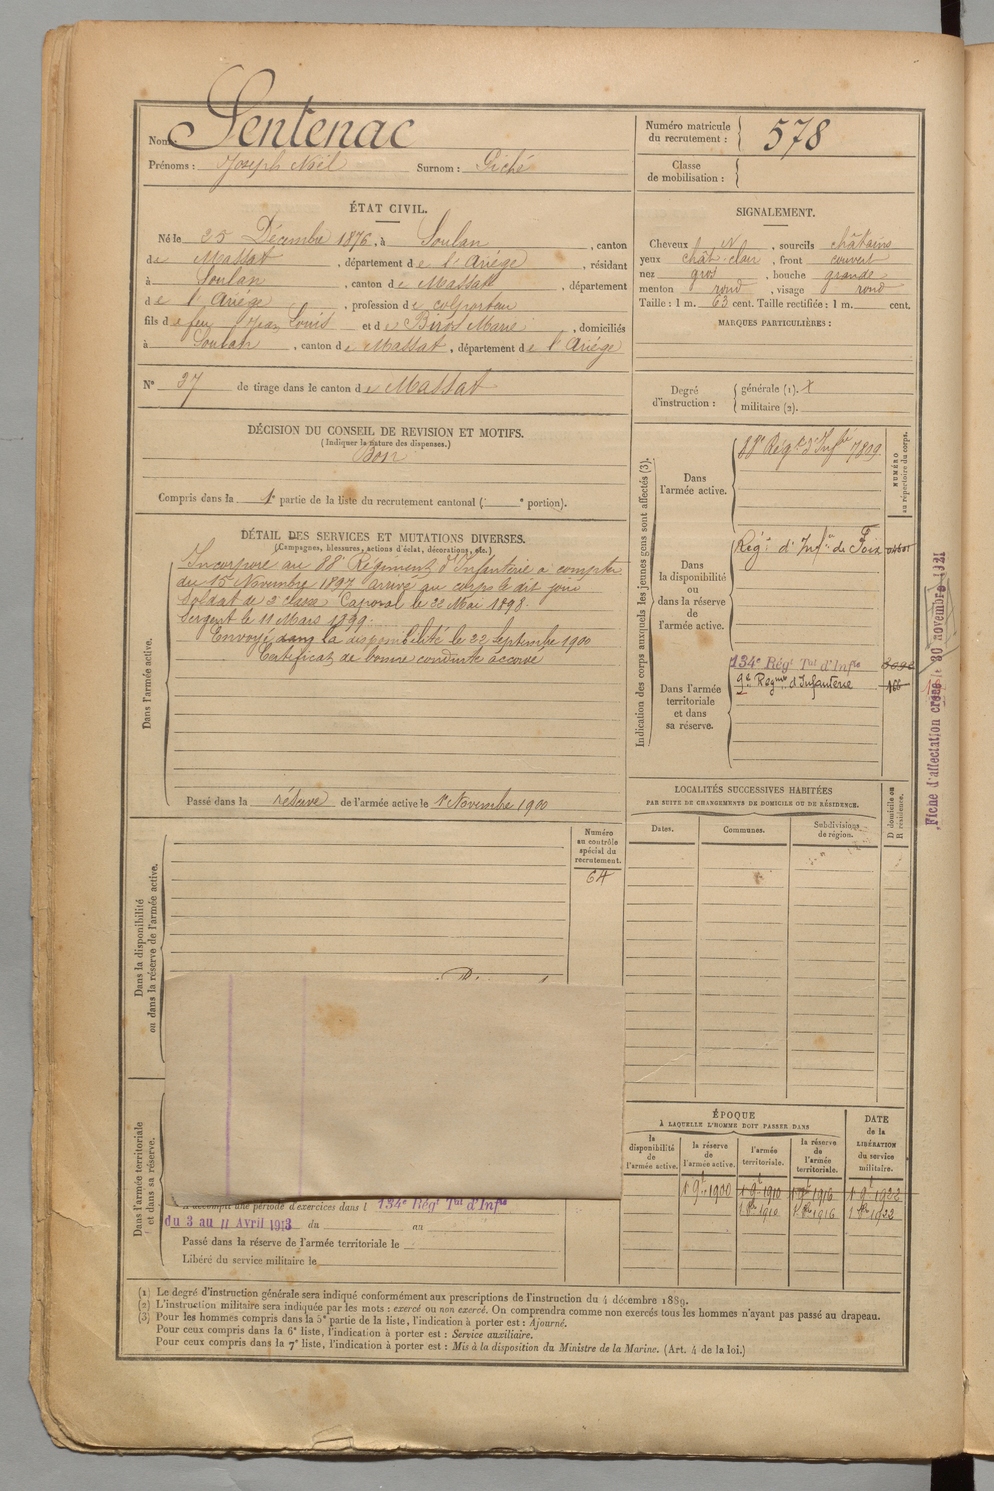 Nom : Sentenac
Prénoms : Joseph Noël Surnom : Piché
Numéro matricule du recrutement : 578
Classe de mobilisation :
ÉTAT CIVIL.
Né le 25 Décembre 1876, à Soulan, canton
de Massat, département de l'Ariége, résidant
à Soulan, canton de Massat, département
de l'Ariége, profession de colporteur
fils de feu Jean Louis et de Biros Marie, domiciliés
à Soulan, canton de Massat, département de l'Ariége
N° 37 de tirage dans le canton de Massat
SIGNALEMENT.
Cheveux N, sourcils châtains
yeux chât-clair, front couvert
nez gros, bouche grande
menton rond, visage rond
Taille : 1 m. 63 cent. Taille rectifiée : 1 m. cent.
MARQUES PARTICULIÈRES :
Degré d'instruction : générale (1).
militaire (2).
DÉCISION DU CONSEIL DE REVISION ET MOTIFS.
(Indiquer la nature des dispenses.)
Bon
Compris dans la 1e partie de la liste du recrutement cantonal ( e portion).
DÉTAIL DES SERVICES ET MUTATIONS DIVERSES.
(Campagnes, blessures, actions d'éclat, décorations, etc.)
Dans l'armée active.
Incorporé au 88e Régiment d'Infanterie a compter
du 15 Novembre 1897 arrivé au corps le dit jour
Soldat de 2 classe Caporal le 22 Mai 1898.
Sergent le 11 Mars 1899.
Envoyé dans la disponibilité le 22 Septembre 1900
Certificat de bonne conduite accordé
Passé dans la réserve de l'armée active le 1er Novembre 1900
Dans la disponibilité ou dans la réserve de l'armée active.
Numéro au contrôle spécial du recrutement.
64
Dans l'armée territoriale et dans sa réserve.
accompli une période d'exercices dans l 134e Régt Tal d'Infie
du 3 au 11 Avril 1913 du au
Passé dans la réserve de l'armée territoriale le
Libéré du service militaire le
Indication des corps auxquels les jeunes gens sont affectés (3).
NUMÉRO au répertoire du corps.
Dans l'armée active.
88e Régt d'Infie 7899
Dans la disponibilité ou dans la réserve de l'armée active.
Régt d'Infie de Foix
Dans l'armée territoriale et dans sa réserve.
134e Régt Tal d'Infie
9e Régiment d'Infanterie
Fiche d'affectation créée le 30 novembre 1921
LOCALITÉS SUCCESSIVES HABITÉES
PAR SUITE DE CHANGEMENTS DE DOMICILE OU DE RÉSIDENCE.
Dates. Communes. Subdivisions de région.
D domicile ou R résidence.
ÉPOQUE
À LAQUELLE L'HOMME DOIT PASSER DANS
la disponibilité de l'armée active.
la réserve de l'armée active.
l'armée territoriale.
la réserve de l'armée territoriale.
DATE de la LIBÉRATION du service militaire.
1 9bre 1900 1 9bre 1910 1 9bre 1916 1 9bre 1922
(1) Le degré d'instruction générale sera indiqué conformément aux prescriptions de l'instruction du 4 décembre 1889.
(2) L'instruction militaire sera indiquée par les mots : exercé ou non exercé. On comprendra comme non exercés tous les hommes n'ayant pas passé au drapeau.
(3) Pour les hommes compris dans la 5e partie de la liste, l'indication à porter est : Ajourné.
Pour ceux compris dans la 6e liste, l'indication à porter est : Service auxiliaire.
Pour ceux compris dans la 7e liste, l'indication à porter est : Mis à la disposition du Ministre de la Marine. (Art. 4 de la loi.)